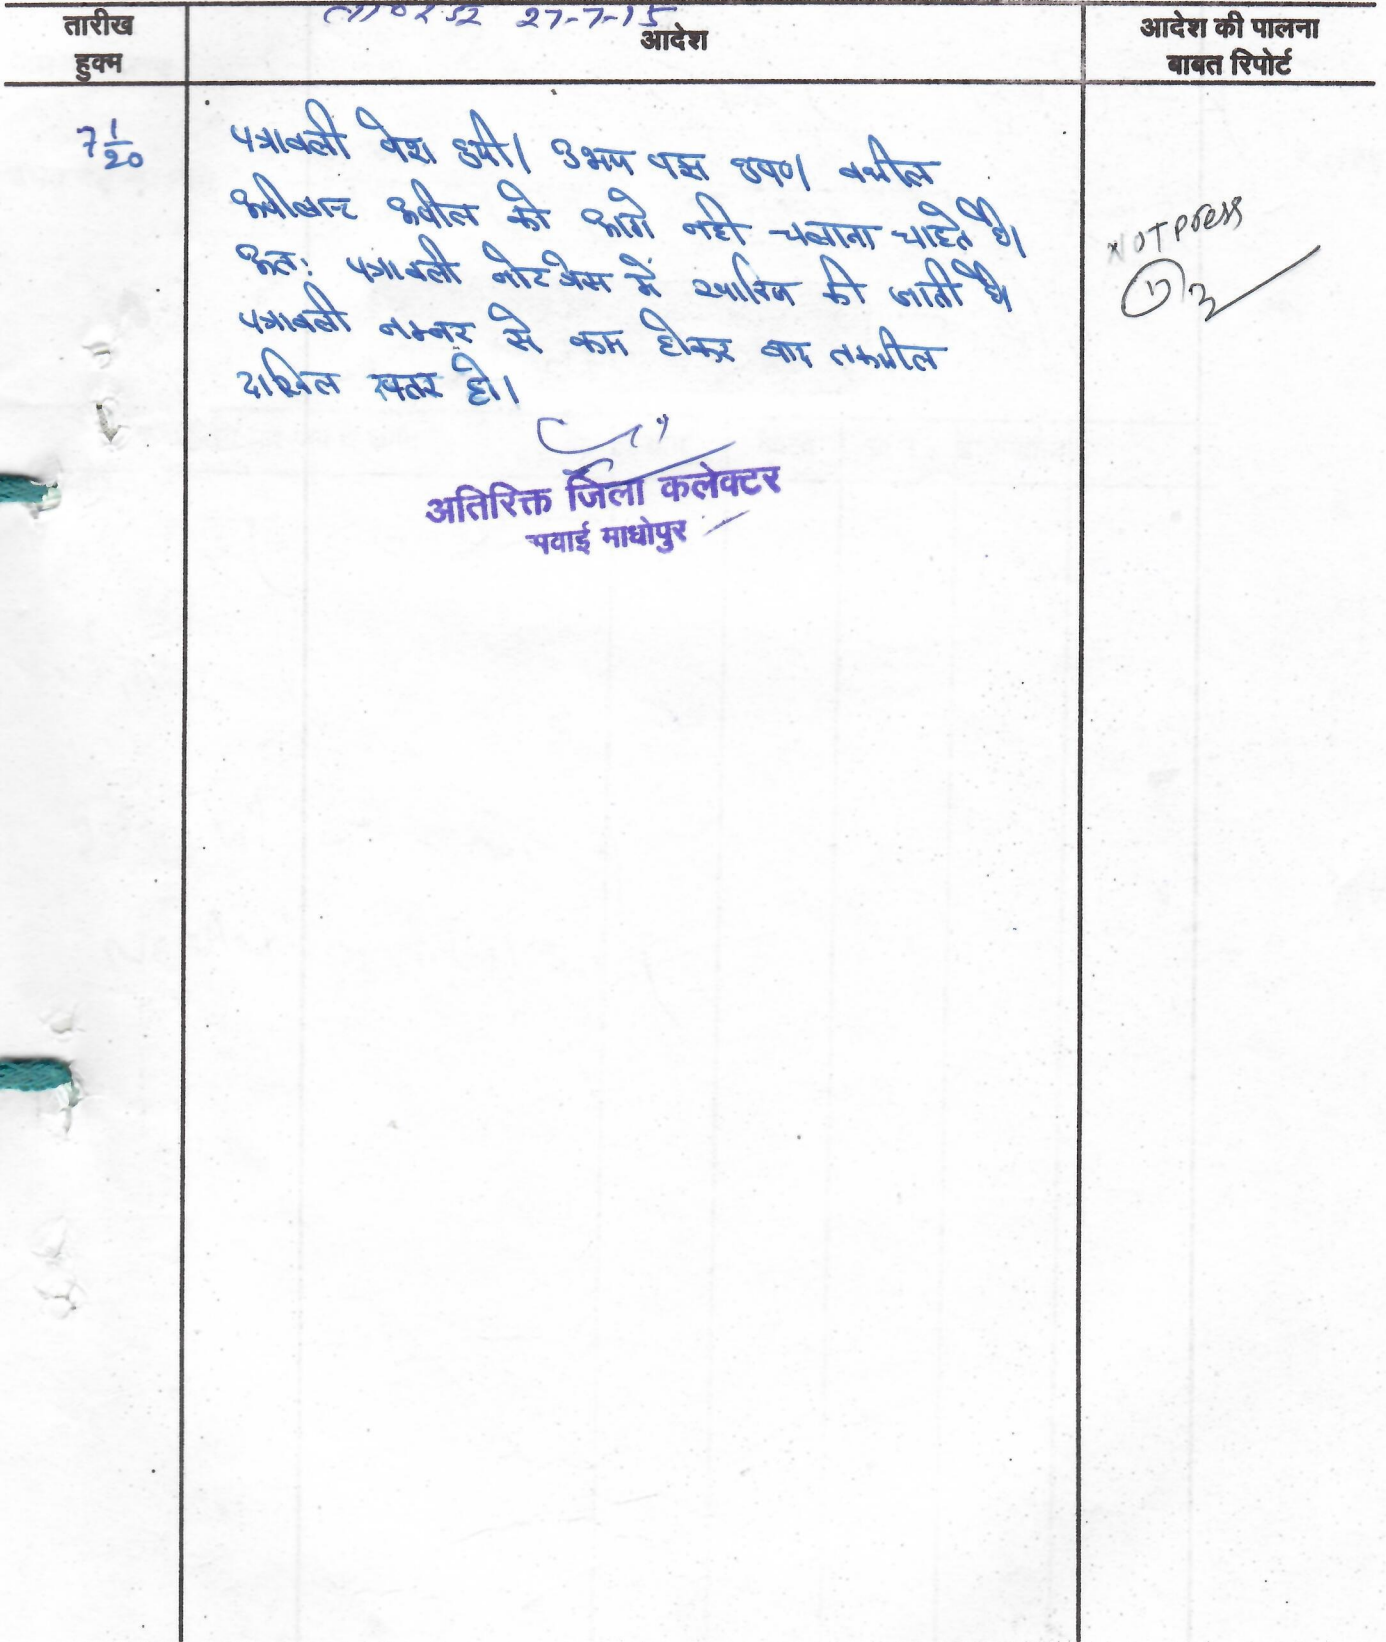 27-7-15
तारीख
हुक्म
आदेश
आदेश की पालना
बाबत रिपोर्ट
7 1/20
पत्रावली पेश हुयी। उभय पक्ष उप०। वकील
अपीलान्ट अपील को आगे नही चलाना चाहते है।
अतः पत्रावली नोटप्रेस में खारिज की जाती है।
पत्रावली नम्बर से कम होकर बाद तकमील
दाखिल दफ्तर हो।
NOT press
अतिरिक्त जिला कलेक्टर
सवाई माधोपुर